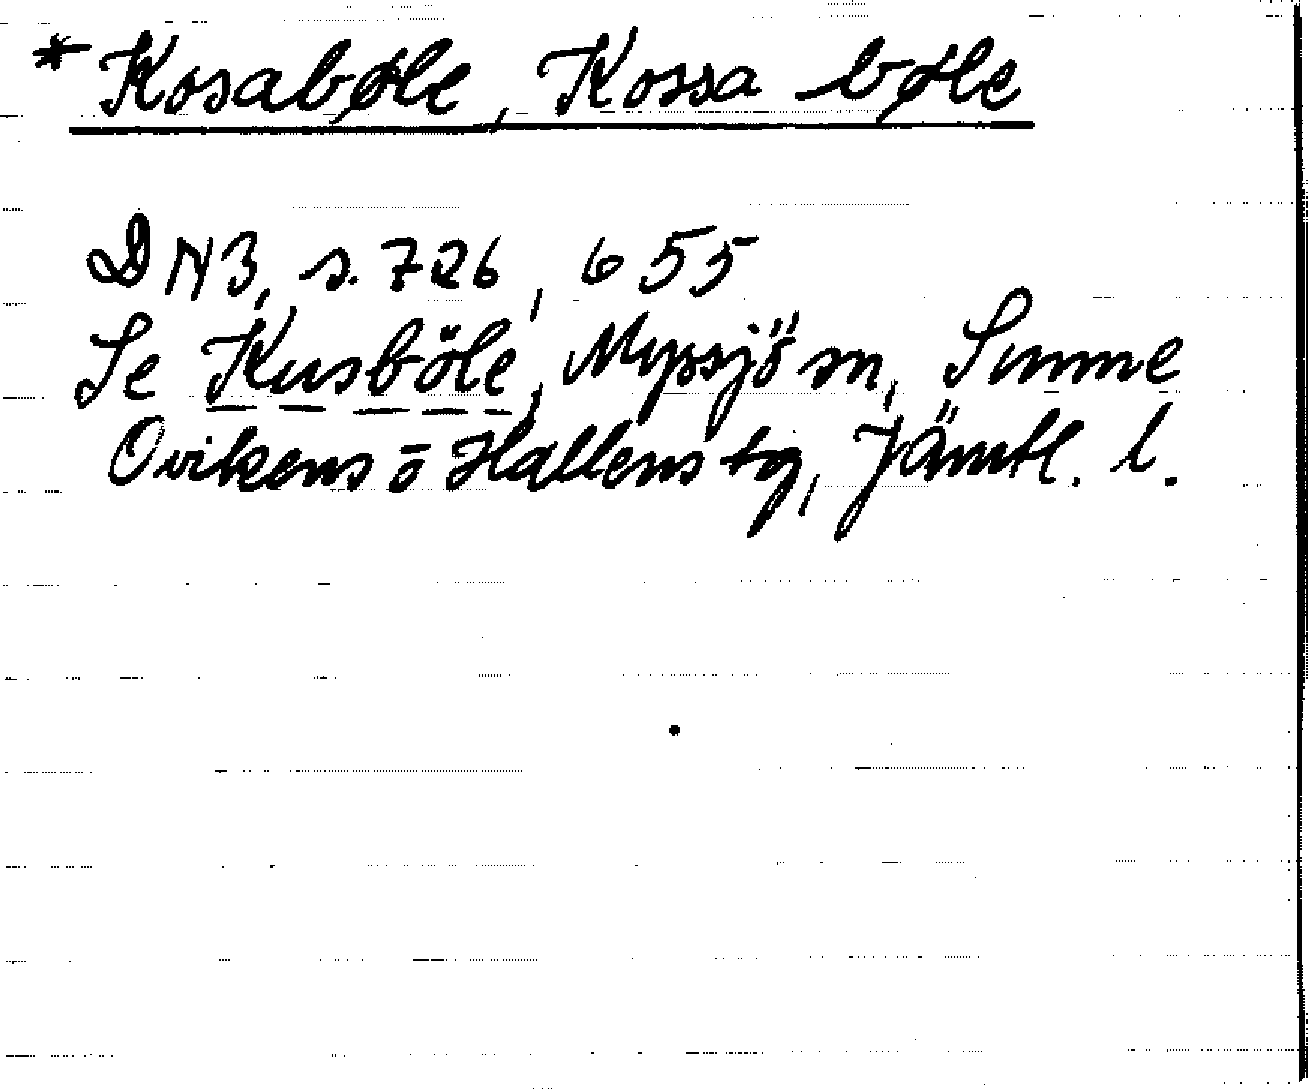 * Kosabøle, Kossa bøle
DN3, s. 726, 655
Se Kusböle, Myssjö sn, Sunne
Ovikens o Hallens tg, Jämtl. l.